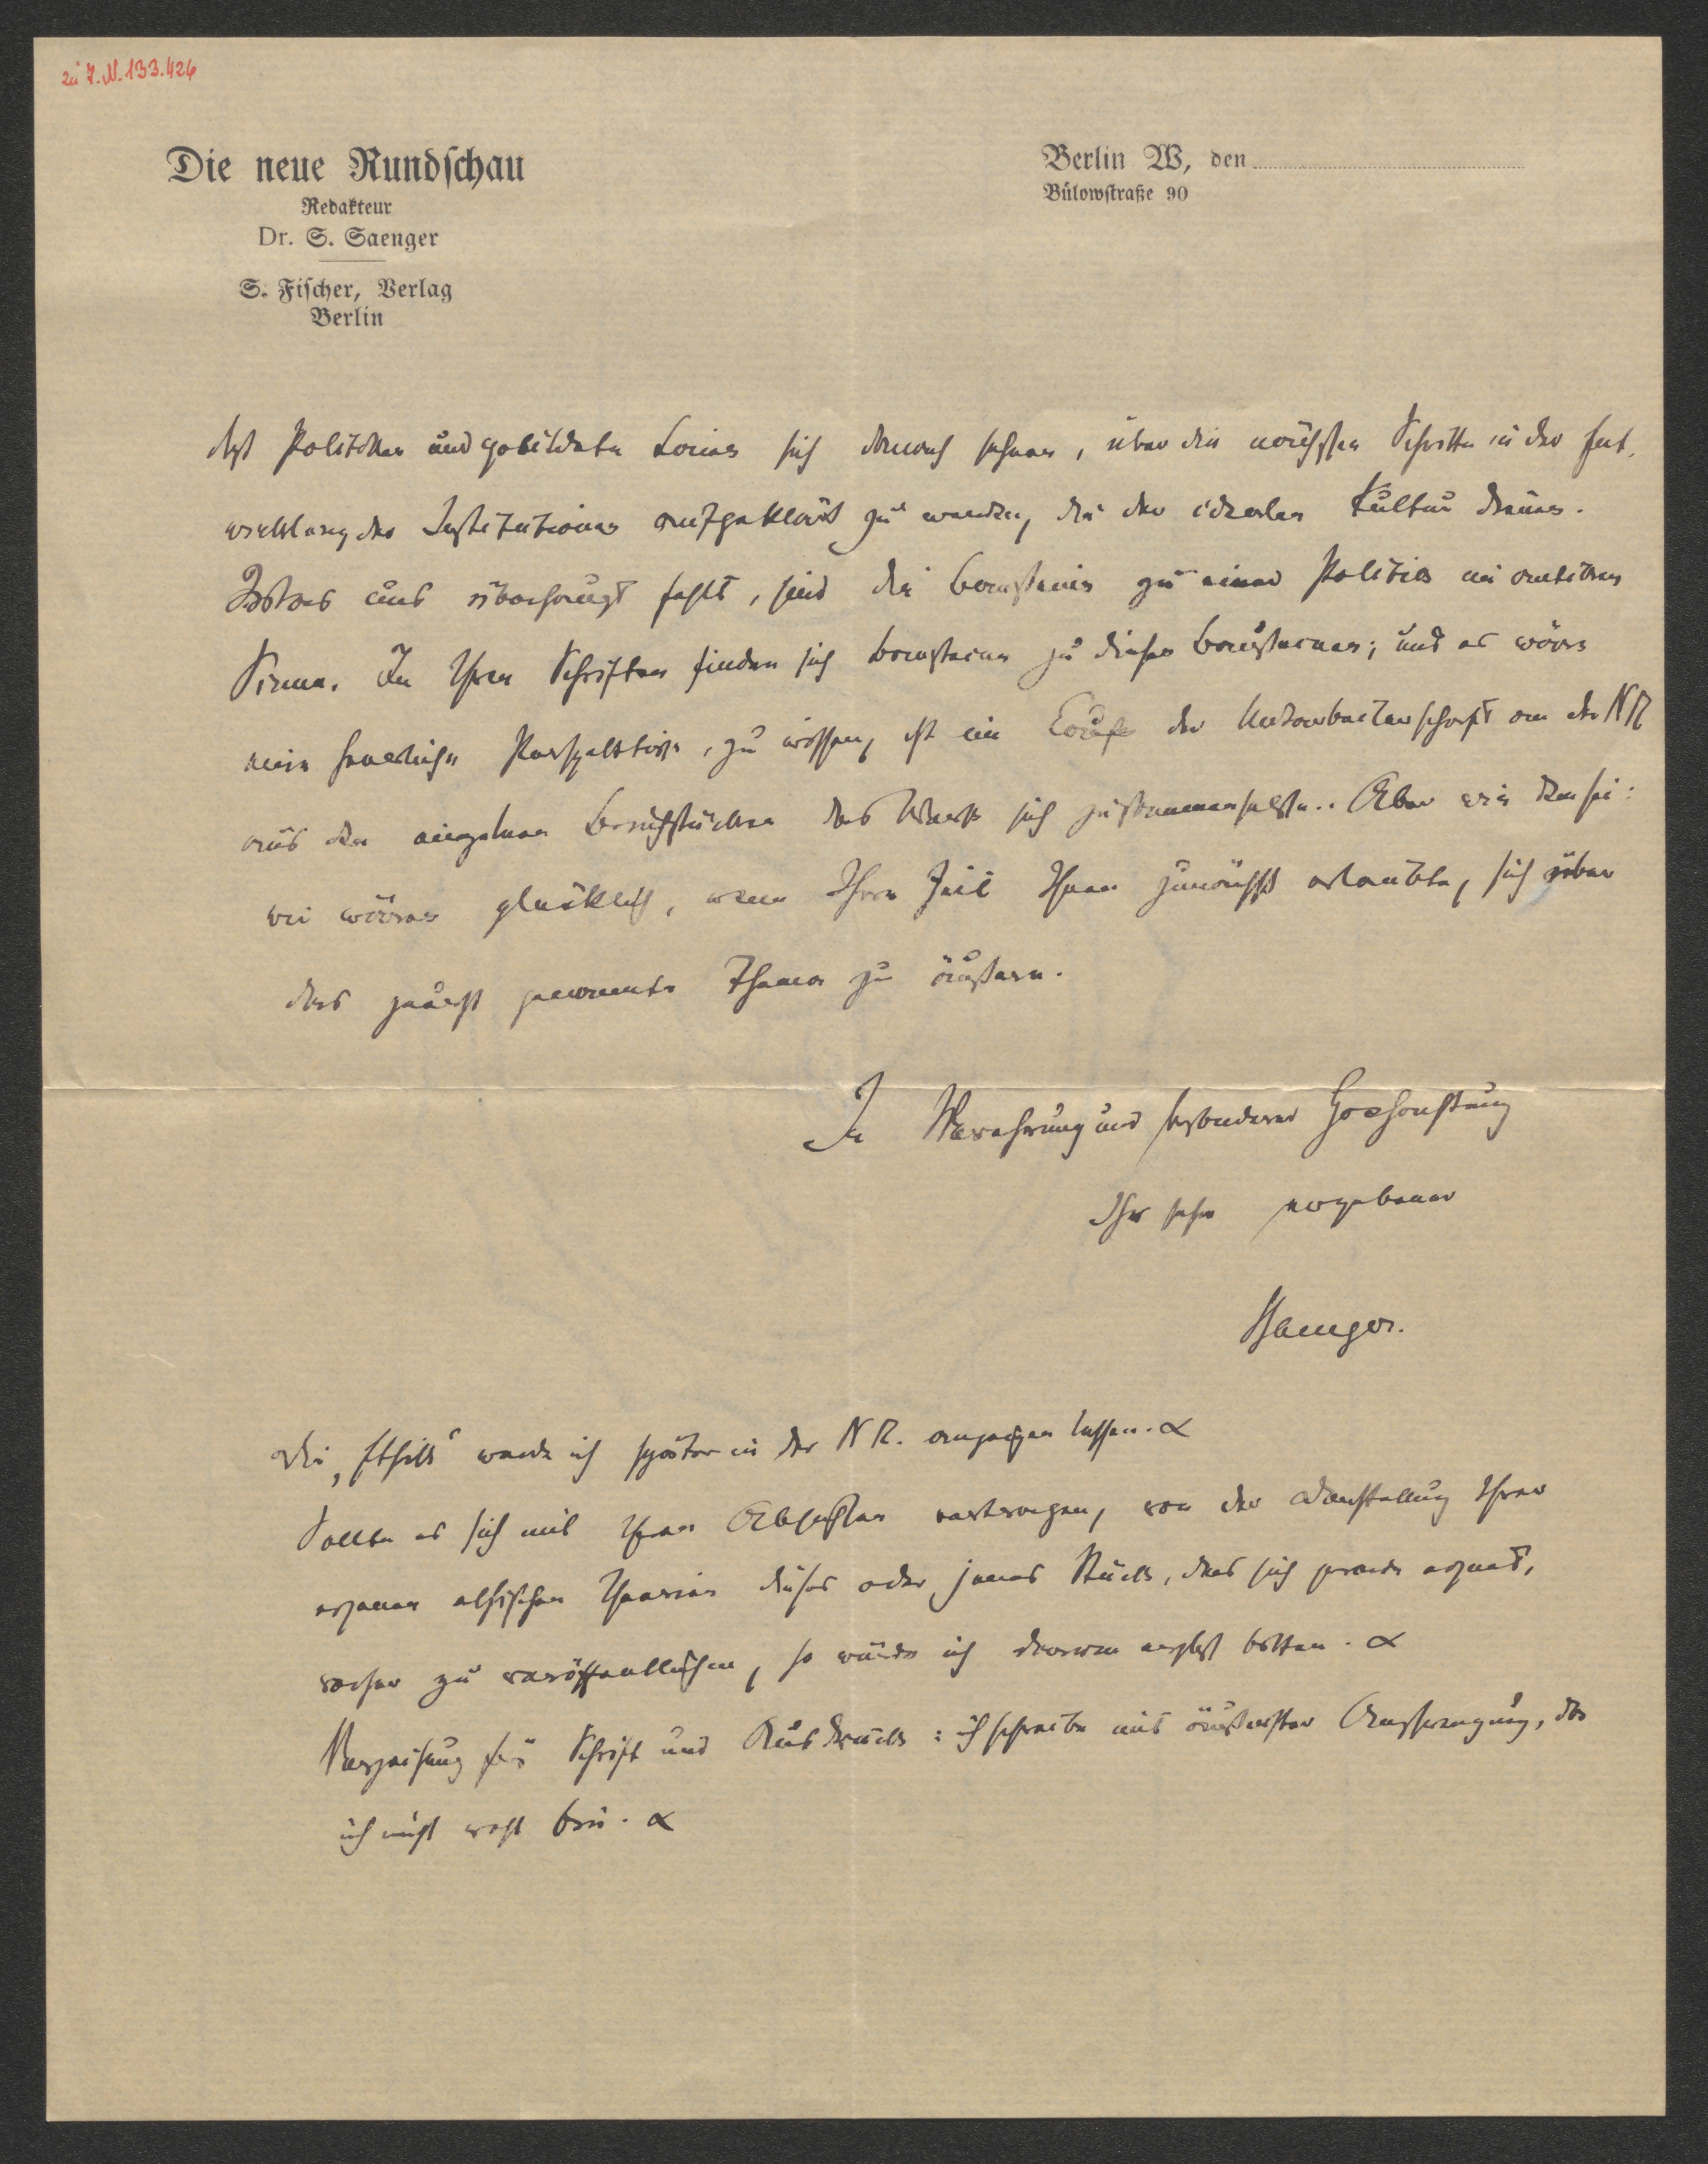 zu I.N. 133.426
Die neue Rundschau
Redakteur
Dr. S. Saenger
S. Fischer, Verlag
Berlin
Berlin W, den
Bülowstraße 90
daß Politiker und gebildete Laien sich danach sehnen, über die nächsten Schritte in der Ent-
wicklung der Institutionen aufgeklärt zu werden, die der idealen Kultur dienen.
uns überhaupt fehlt, sind die Bausteine zu einer Politik im antiken
Sinne. In Ihren Schriften finden sich Bausteine zu diesen Bausteinen; und es wäre
eine herrliche Perspektive, zu wissen, ist im Laufe der Mitarbeiterschaft an der NR
aus den einzelnen Bruchstücken das Werk sich zusammensetzte. Aber wie dem sei:
wir wären glücklich, wenn Ihre Zeit Ihnen zunächst erlaubte, sich über
das zuerst genannte Thema zu äußern.
In Verehrung und besonderer Hochachtung
Ihr sehr ergebener
Saenger.
Die „Ethik“ werde ich später in der NR. anzeigen lassen.
Sollte es sich mit Ihren Absichten vertragen, von der Darstellung Ihrer
eigenen ethischen Theorien dieses oder jenes Stück, das sich gerade eignet,
vorher zu veröffentlichen, so würde ich darum ergebenst bitten.
Verzeihung für Schrift und Ausdruck: ich schreibe mit äußerster Anstrengung, da
ich nicht wohl bin.